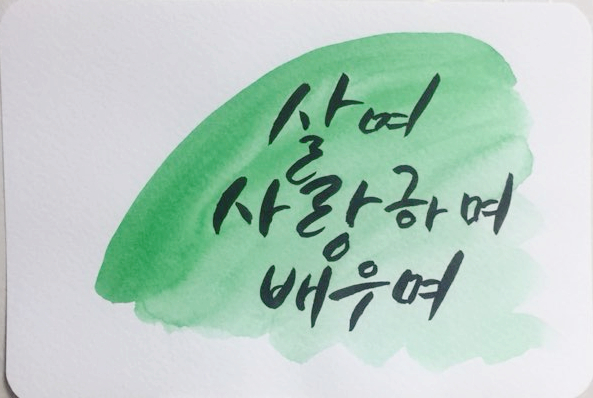 살며
사랑하며
배우며